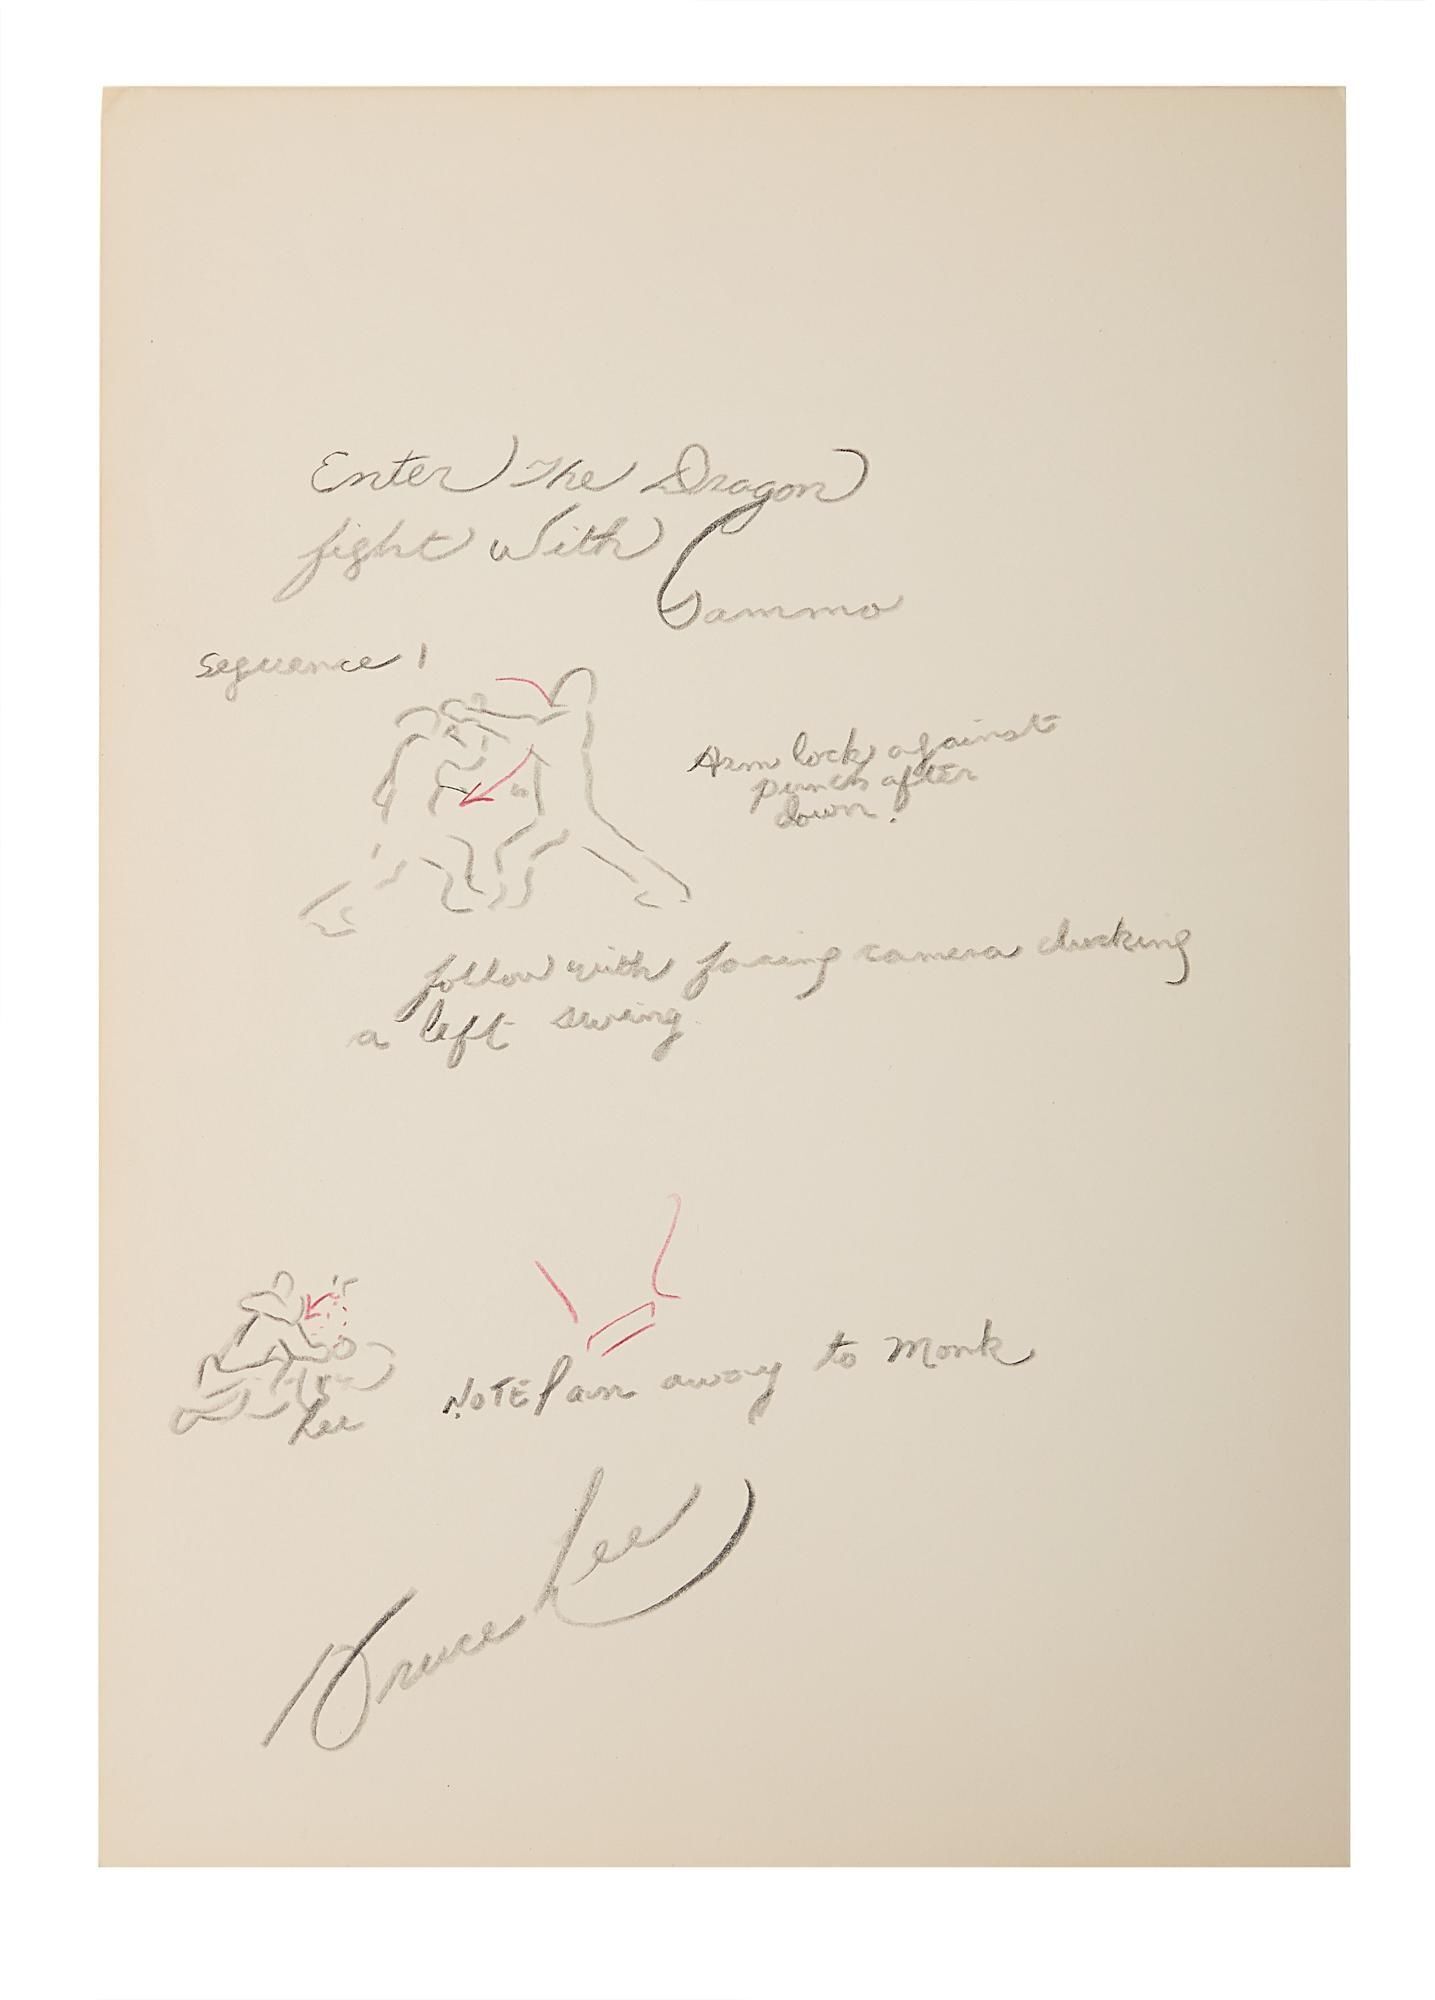 Enter The Dragon
fight With
Sammo
Sequence 1
Arm lock against
punch after
down.
follow with facing camera ducking
a left swing
Lee
NOTE Pan away to Monk
Bruce Lee